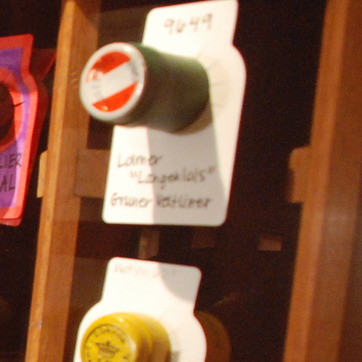 9649
Loimer
"Langenlois"
Gruner Veltliner
LIER
AL